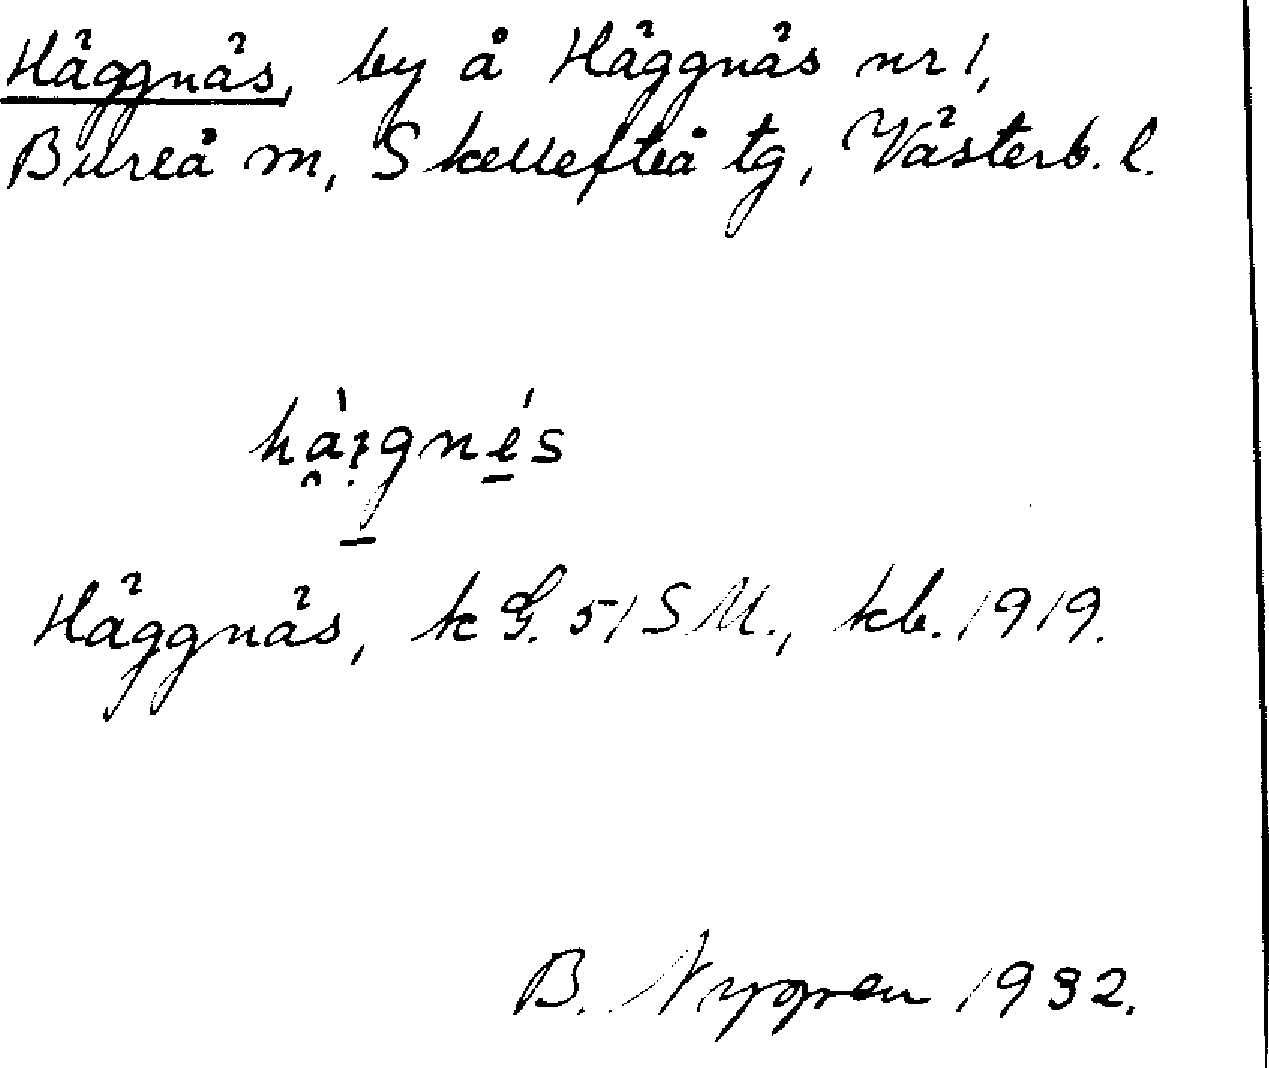 Häggnäs, by å Häggnäs nr 1,
Bureå m, Skellefteå tg, Västerb. l.
Häggnäs, kG. 51 S M., kb. 1919.
B. Nygren 1932.